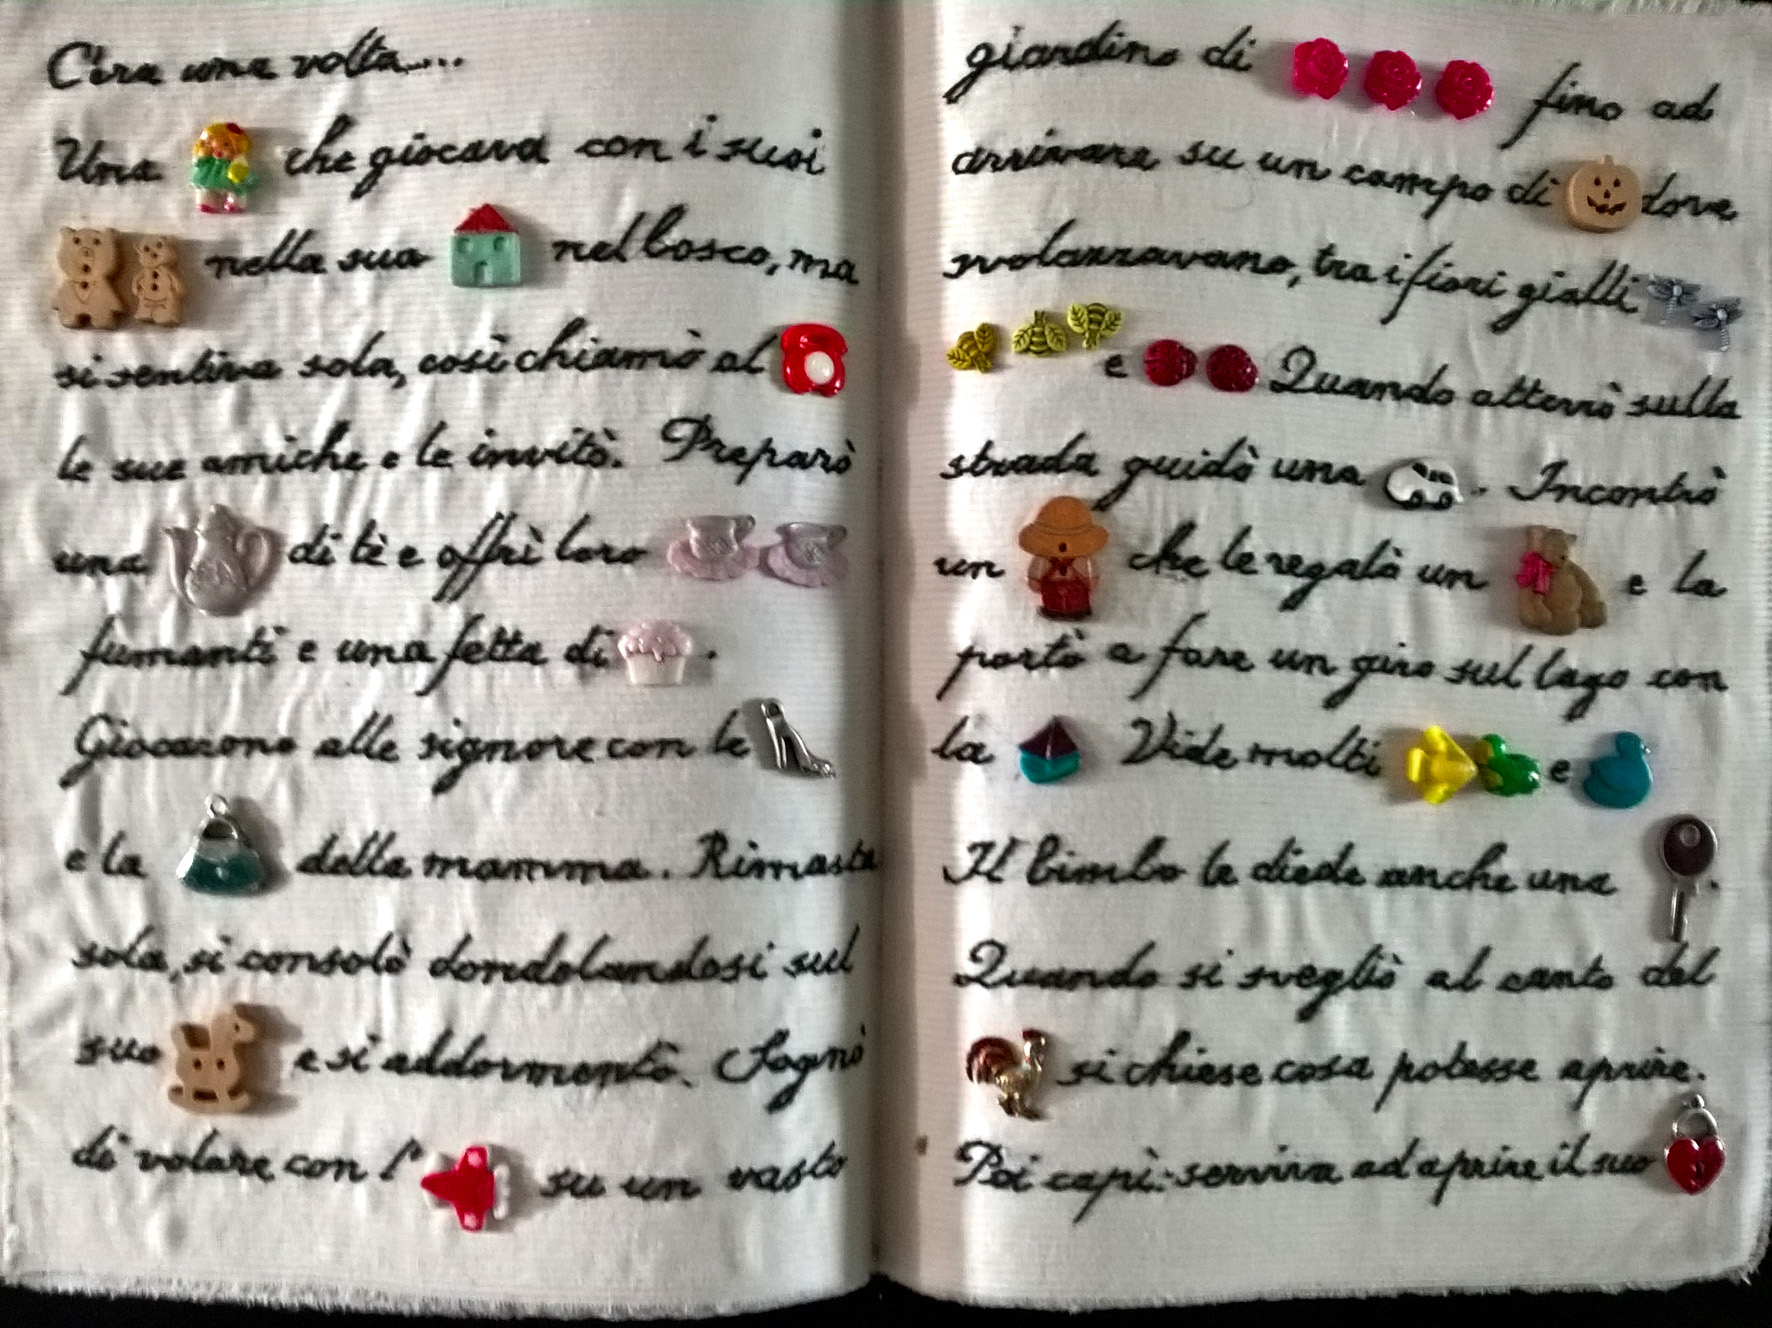 C'era una volta....
Una che giocava con i suoi
nella sua nel bosco, ma
si sentiva sola, così chiamò al
le sue amiche e le invitò. Preparò
una di tè e offrì loro
fumanti e una fetta di .
Giocarono alle signore con le
e la della mamma. Rimasta
sola, si consolò dondolandosi sul
suo e si addormentò. Sognò
di volare con l' su un vasto
giardino di fino ad
arrivare su un campo di dove
svolazzavano, tra i fiori gialli
e Quando atterrò sulla
strada guidò una . Incontrò
un che le regalò un e la
portò a fare un giro sul lago con
la Vide molti e
Il bimbo le diede anche una .
Quando si svegliò al canto del
si chiese cosa potesse aprire.
Poi capì: serviva ad aprire il suo